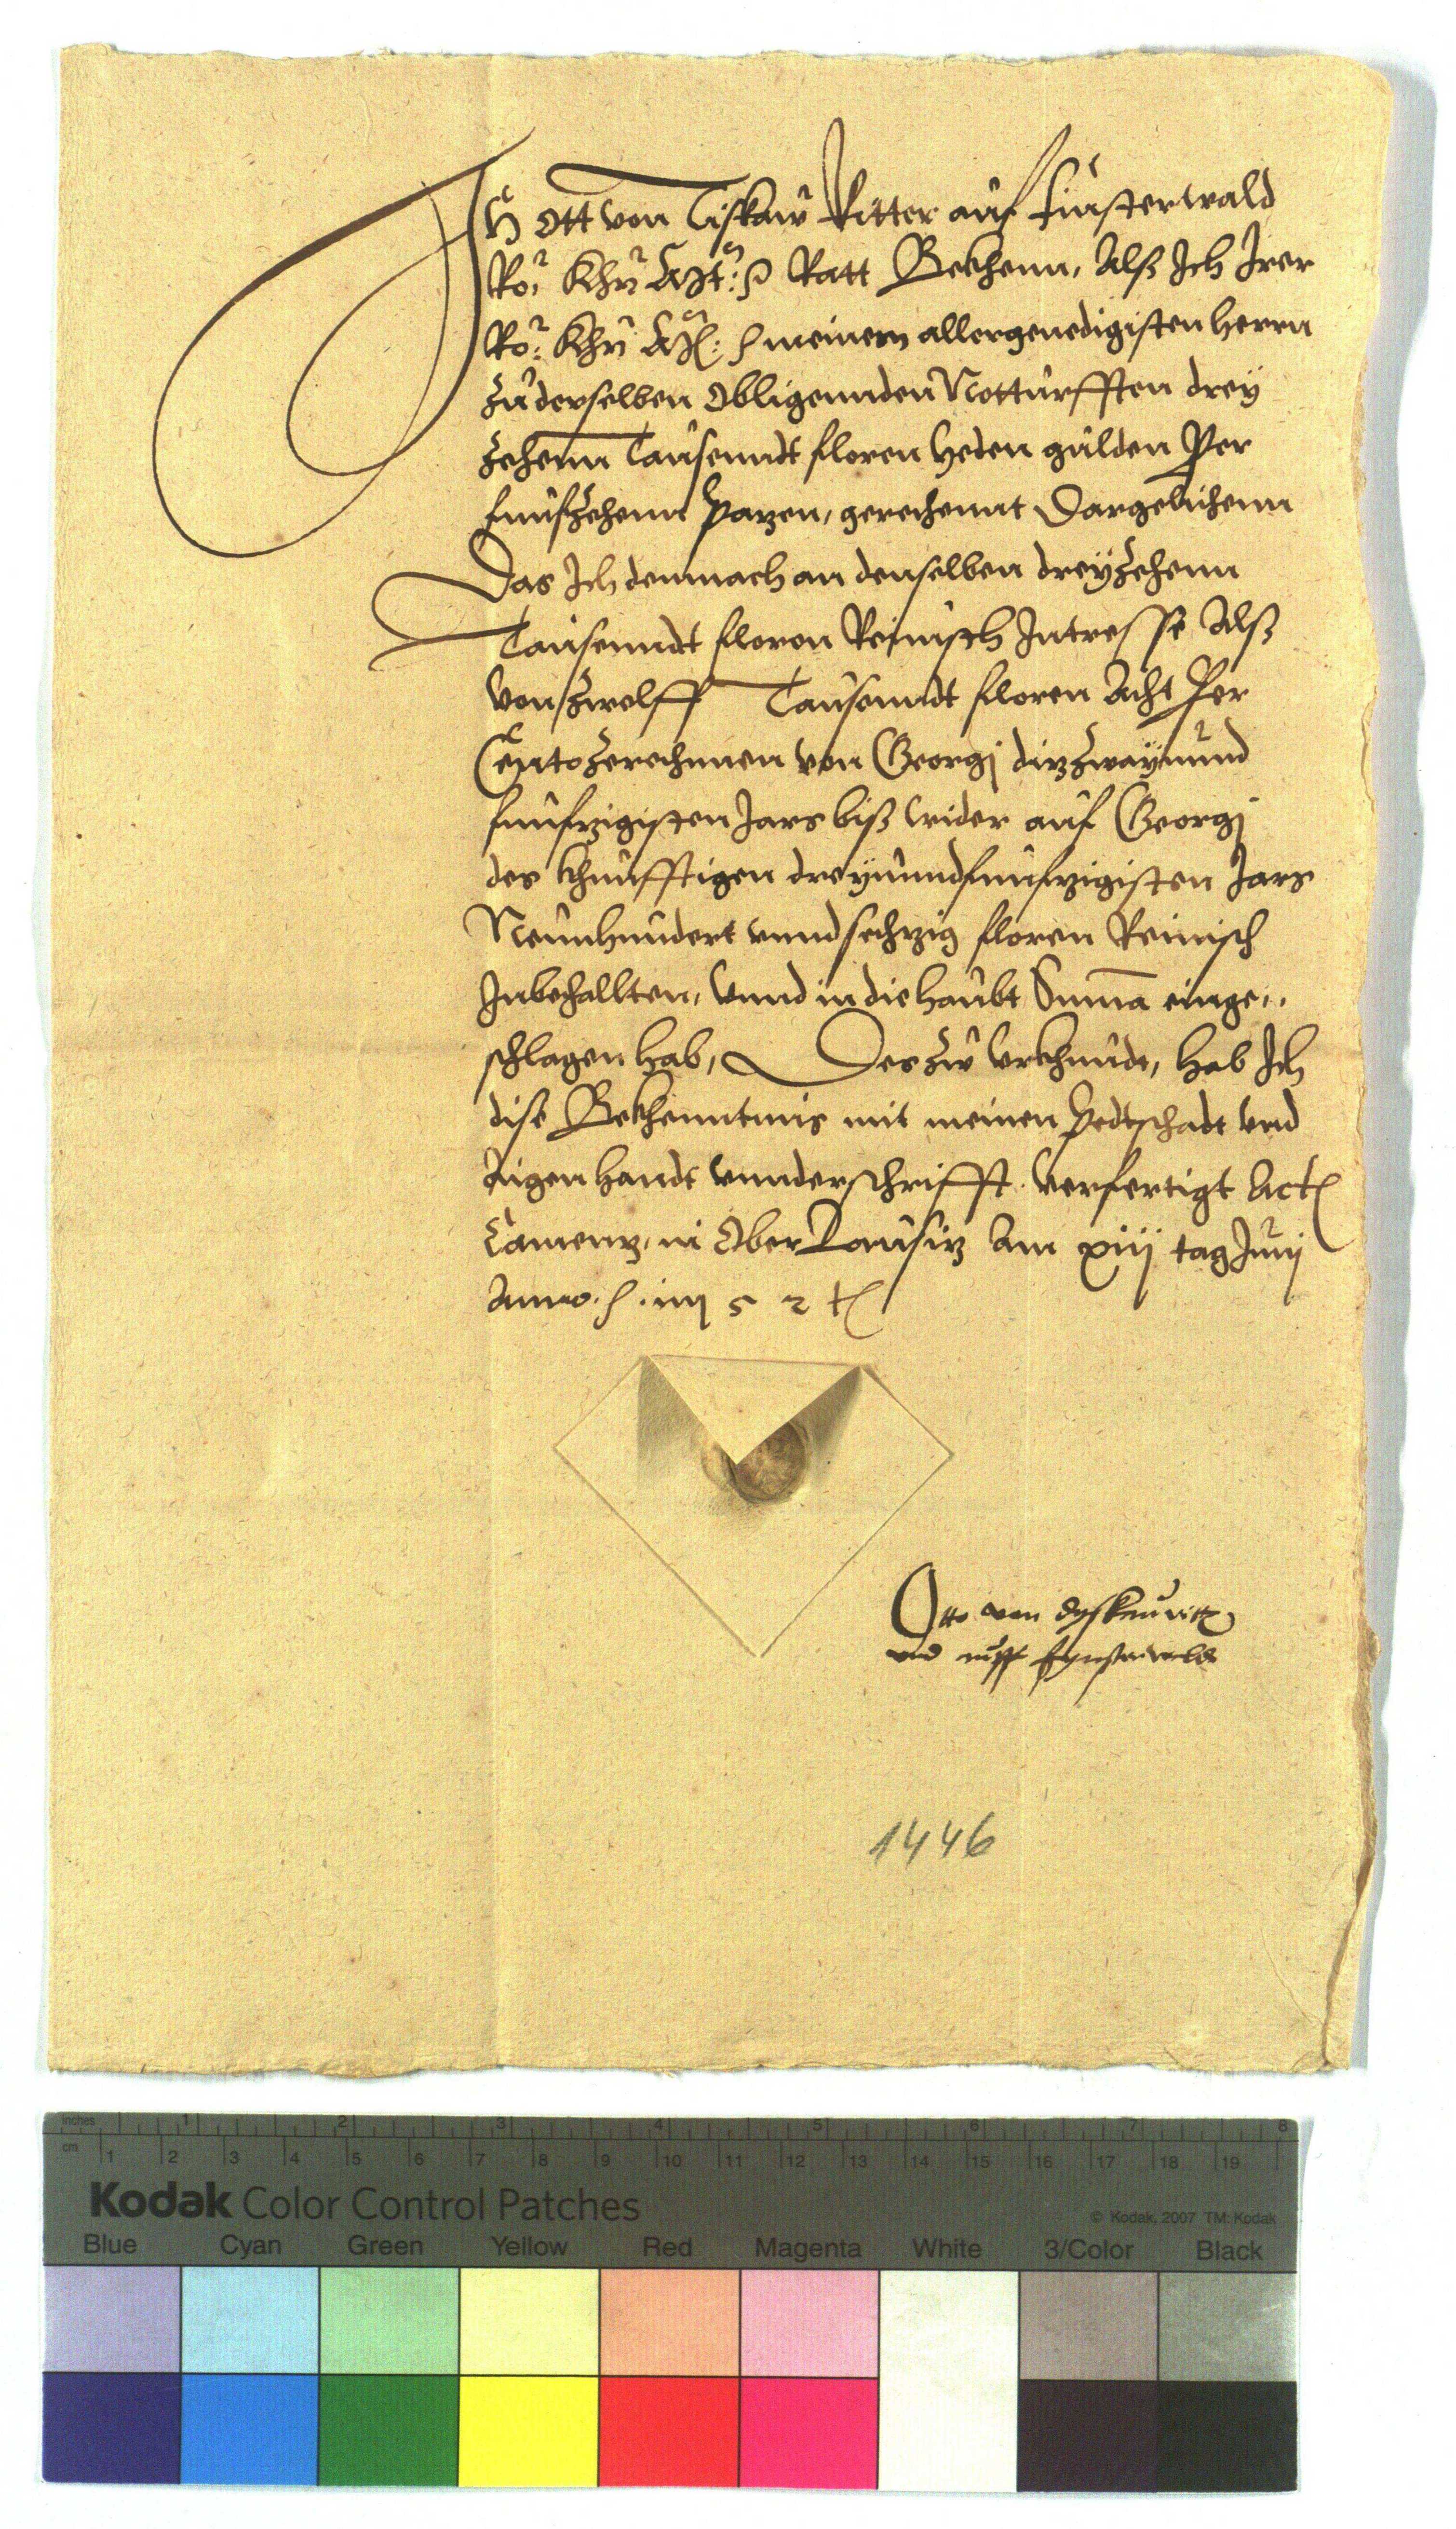 Ich Ott von Tiskaw Ritter auf Finsterwald
Rö: Khü: Mt: Ratt Bekhenn, Alß Ich Irer
Rö: Khü: Mt: meinem allergenedigisten herrn
zu derselben Obligennden Notturfften drey
zehenn Tausenndt floren Yeden gulden Per
funfzehenn Pazen, gerechennt Dargelichenn
Das Ich demnach an denselben dreyzehenn
Tausenndt floren Reinisch Intresse Alß
von zwelff Tausenndt floren Acht Per
Cento zerechnen von Georgj diz zwayund
funfzigisten Jars biß wider auf Georgj
des khunfftigen dreyunndfunfzigisten Jars
Neunhundert unnd sechzig floren Reinisch
Inbehallten, unnd in die haubt Suma einge,,
schlagen hab, Des zu Urkhundt, hab Ich
dise Bekhenntnis mit meinen Pedtschadt und
Aigen handt unnderschrifft verfertigt Act
Camenz, in Ober Lausiz Am xiij tag Junij
Anno im 52
Otto von dyskau ritt
und uff fynsterwald
1446
inches 1 2 3 4 5 6 7 8
cm 1 2 3 4 5 6 7 8 9 10 11 12 13 14 15 16 17 18 19
Kodak Color Control Patches
© Kodak, 2007 TM: Kodak
Blue Cyan Green Yellow Red Magenta White 3/Color Black